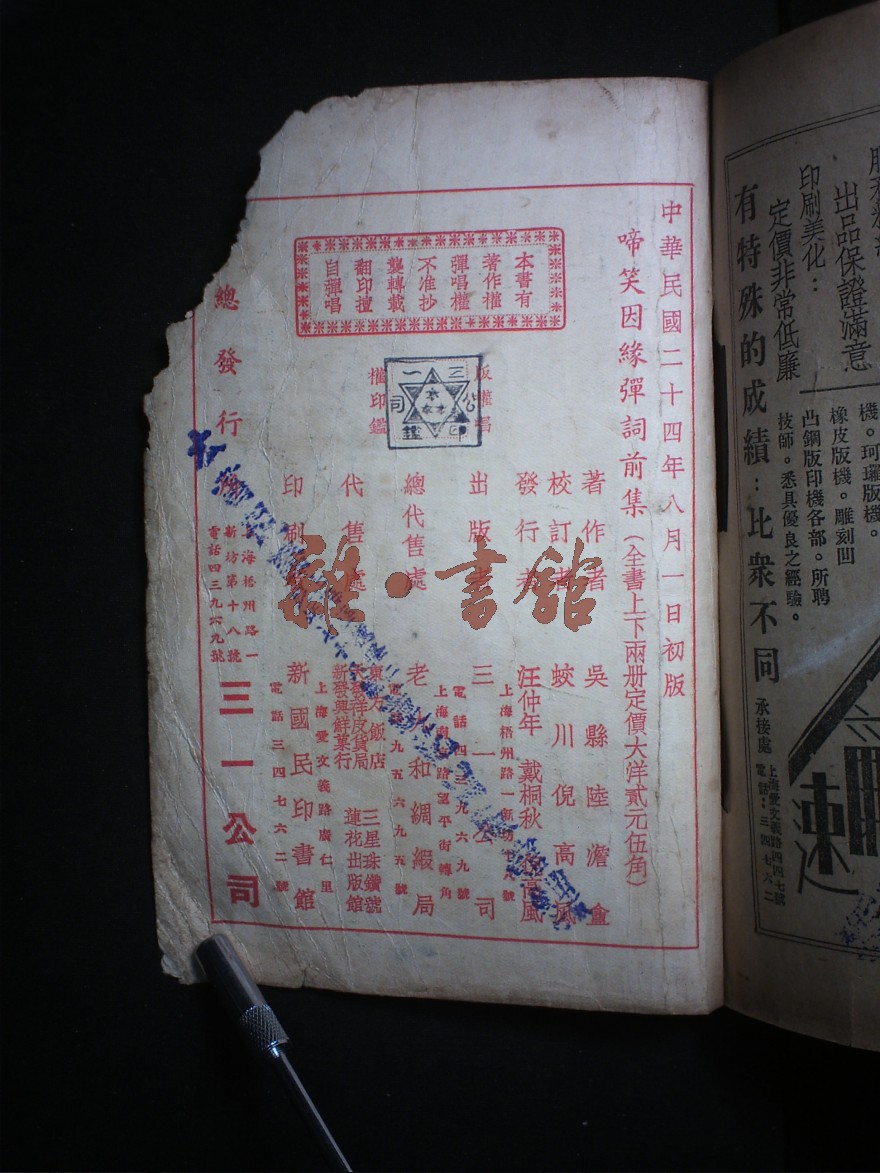 中華民國二十四年八月一日初版
啼笑因緣彈詞前集(全書上下兩册定價大洋貳元伍角)
本書有
著作權
彈唱權
不准抄
襲轉載
翻印擅
自彈唱
權印鑑
三一公司印鑑
著作者 吳縣陸澹盦
校訂者 蛟川倪高風
發行者 汪仲年 戴桐秋 高風
上海梧州路一
出版者 三一公司
電話四三九六九號
總代售處 老 和綢緞局
上海南 路望平街轉角
電話九五六九五號
代售處 東 飯店
大發祥皮貨局
新發興鮮菓行
三星珠鑽號
蓮花出版館
印刷 新國民印書館
上海愛文義路廣仁里
電話三四七六二號
總發行 三一公司
上海梧州路一
新坊第十八號
電話四三九六九號
雜·書館
出品保證滿意
印刷美化:
定價非常低廉
有特殊的成績:比衆不同
機。珂瓏版機。
橡皮版機。雕刻凹
凸鋼版印機各部。所聘
技師。悉具優良之經驗。
承接處
上海愛文義路四四七號
電話:三四七六二
速